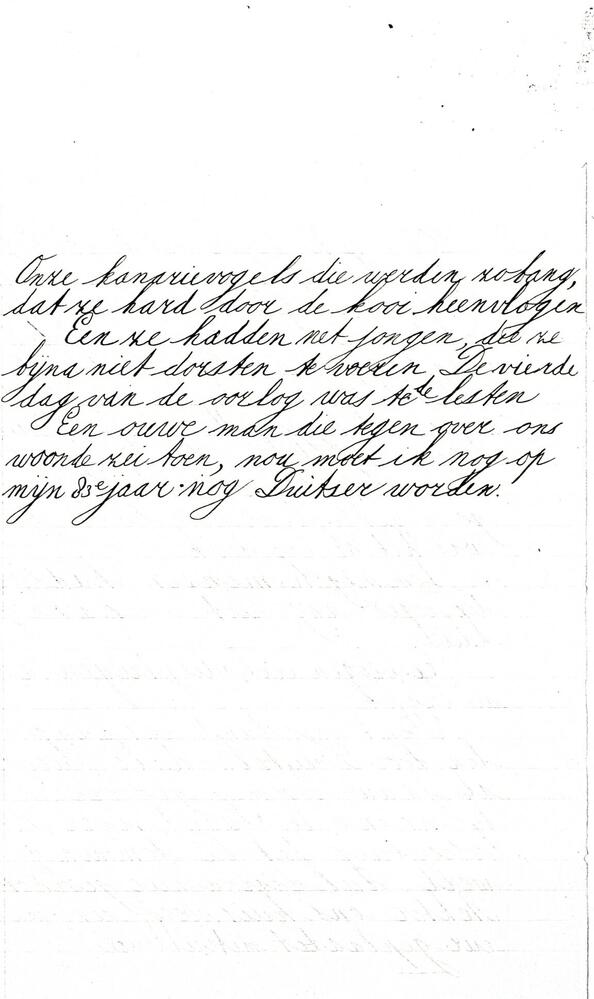 Onze kanarievogels die werden zo bang,
dat ze hard door de kooi heenvlogen
Een ze hadden net jongen, die ze
bijna niet dorsten te voeren, De vierde
dag van de oorlog was te de lesten
Een ouwe man die tegen over ons
woonde zei toen, nou moet ik nog op
mijn 83e jaar nog Duitser worden.